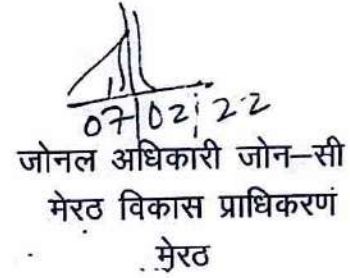 07/02/22
जोनल अधिकारी जोन–सी
मेरठ विकास प्राधिकरण
मेरठ